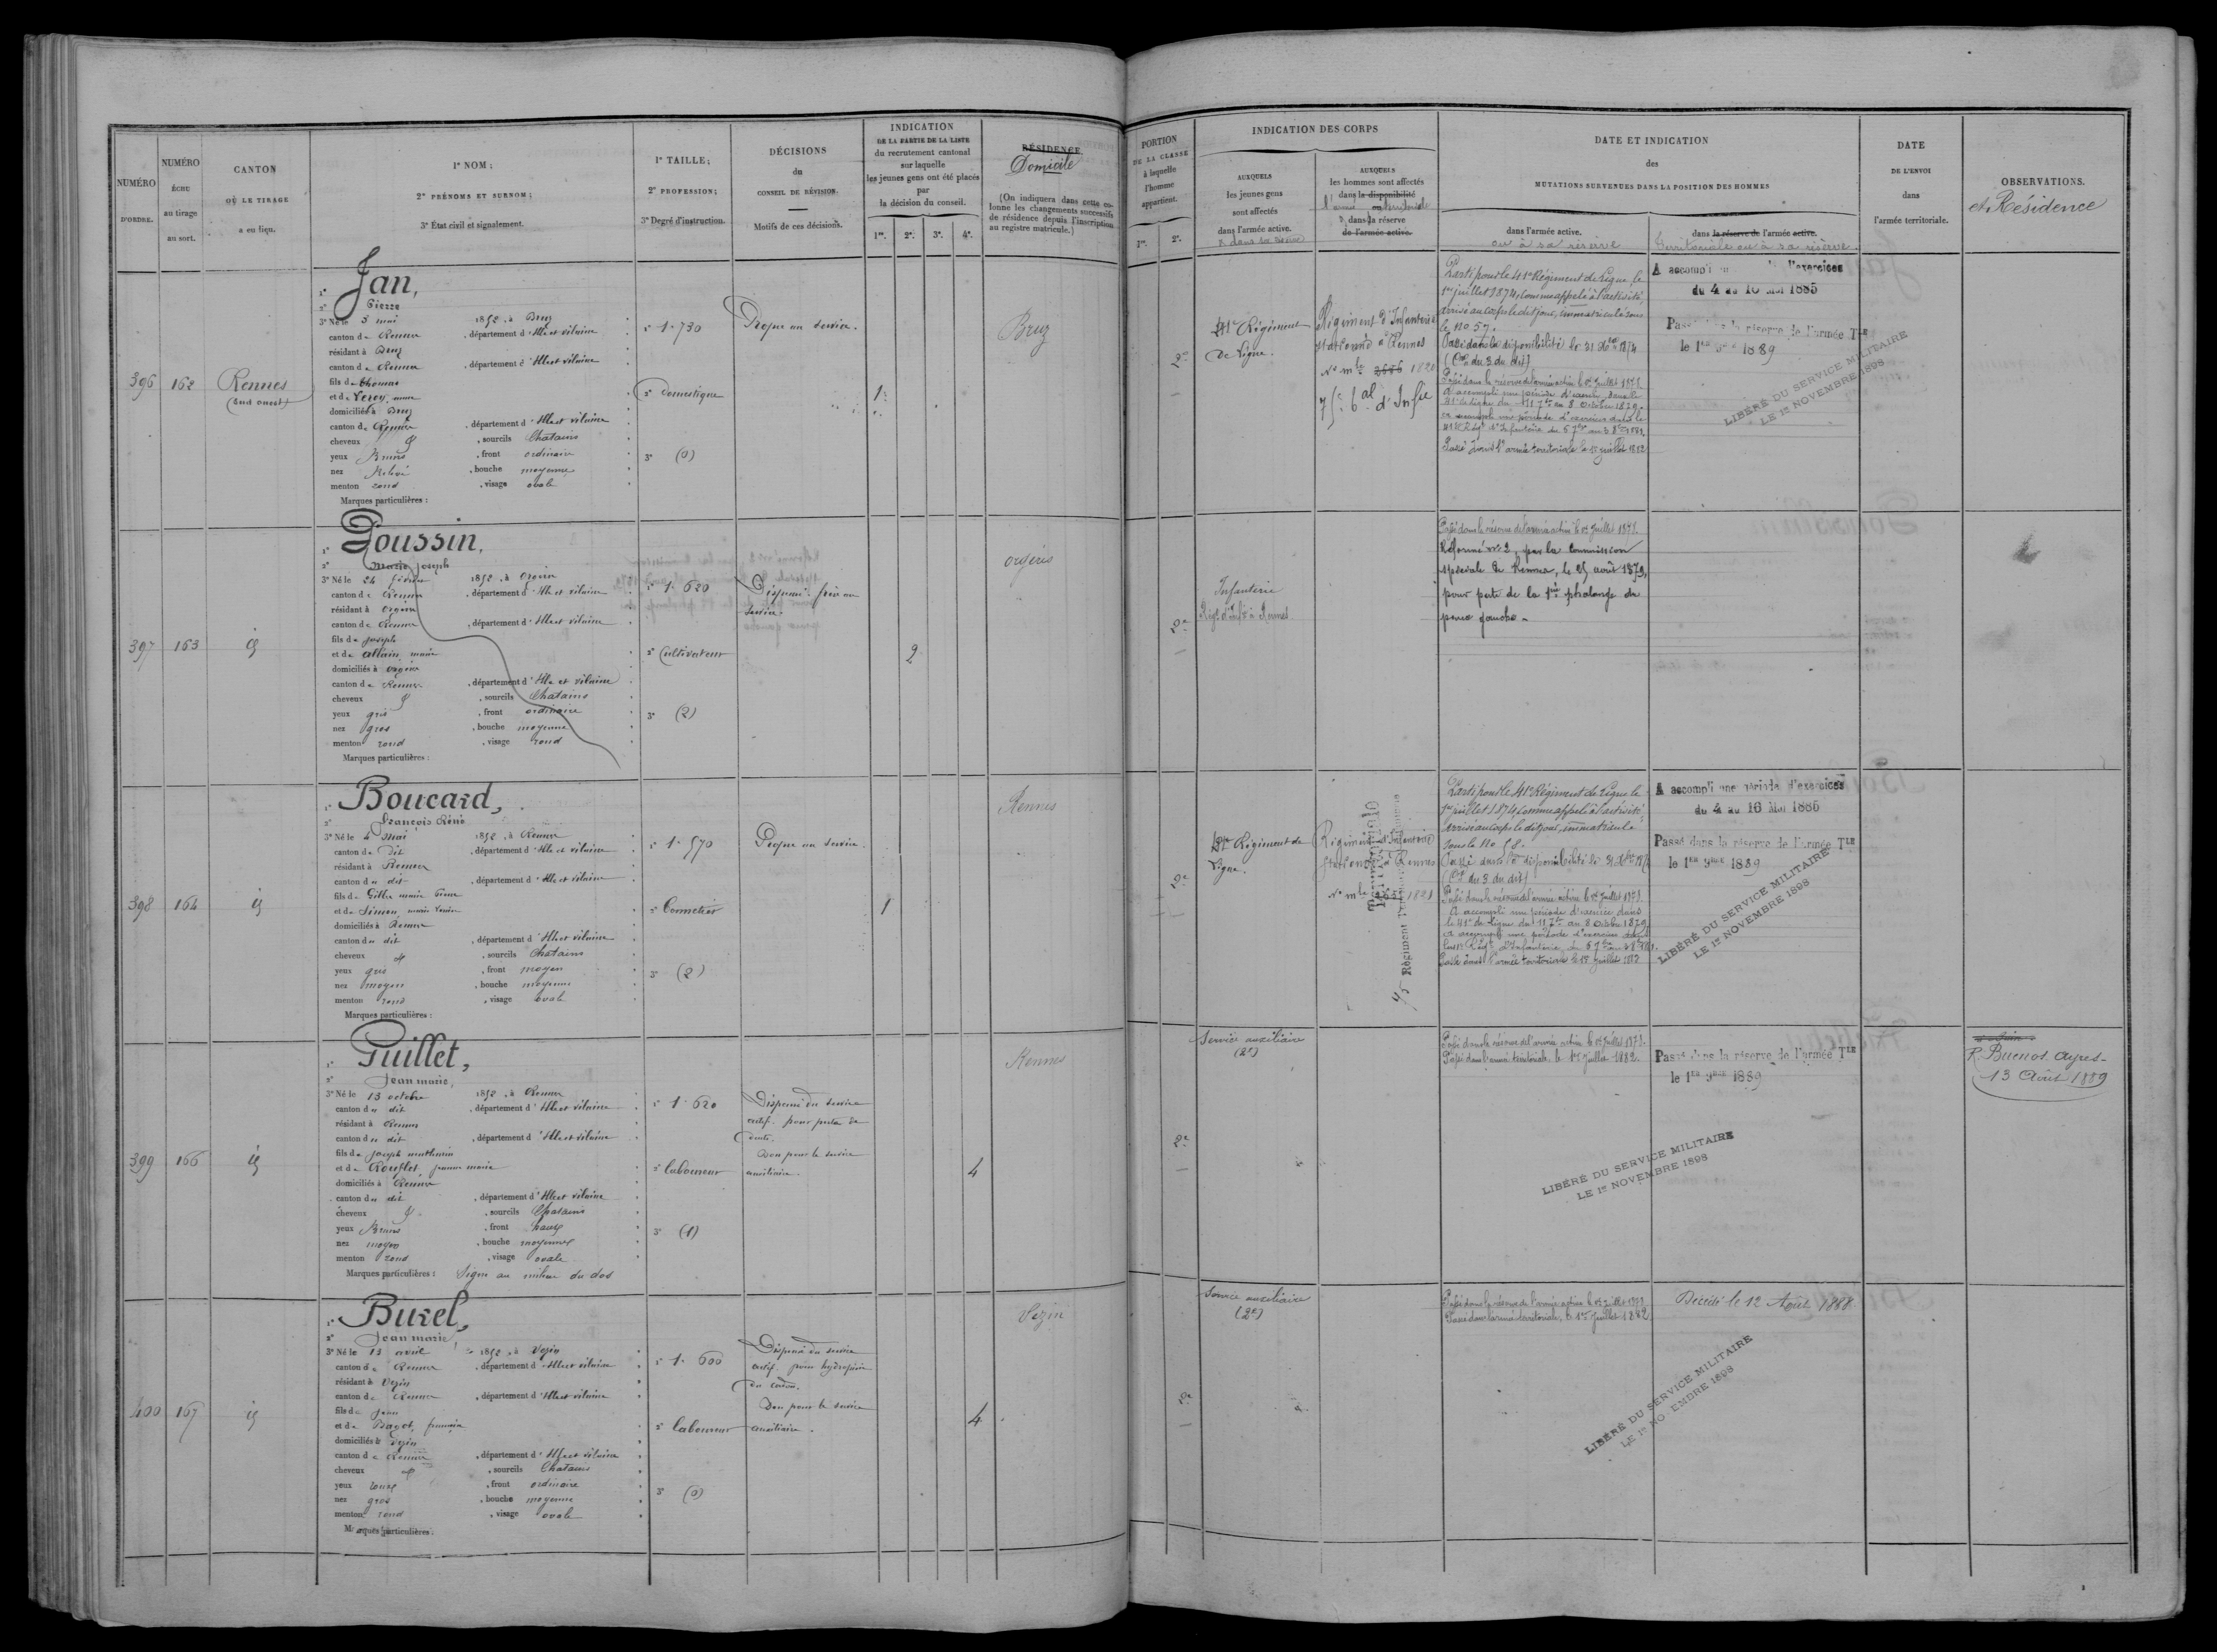 NUMÉRO
D'ORDRE.
NUMÉRO
ÉCHU
au tirage
au sort.
CANTON
OÙ LE TIRAGE
a eu lieu.
1° NOM;
2° PRÉNOMS ET SURNOM;
3° État civil et signalement.
1° TAILLE;
2° PROFESSION;
3° Degré d'instruction.
DÉCISIONS
du
CONSEIL DE RÉVISION.
Motifs de ces décisions.
INDICATION
DE LA PARTIE DE LA LISTE
du recrutement cantonal
sur laquelle
les jeunes gens ont été placés
par
la décision du conseil.
1re. 2e. 3e. 4e.
RÉSIDENCE
Domicile
(On indiquera dans cette colonne
les changements successifs
de résidence depuis l'inscription
au registre matricule.)
PORTION
DE LA CLASSE
à laquelle
l'homme
appartient.
1re. 2e.
INDICATION DES CORPS
AUXQUELS
les jeunes gens
sont affectés
dans l'armée active.
AUXQUELS
les hommes sont affectés
dans la disponibilité
dans la réserve
de l'armée active.
DATE ET INDICATION
des
MUTATIONS SURVENUES DANS LA POSITION DES HOMMES
dans l'armée active.
ou à sa réserve
dans la réserve de l'armée active.
territoriale ou à sa réserve.
DATE
DE L'ENVOI
dans
l'armée territoriale.
OBSERVATIONS.
et Résidence
396
162
Rennes
(sud ouest)
1° Jan,
2° Pierre
3° Né le 3 mai 1852, à Bruz
canton de Rennes, département d'Ille et vilaine
résidant à Bruz
canton de Rennes, département d'Ille et vilaine
fils de thomas
et de Leroy, anne
domiciliés à Bruz
canton de Rennes, département d'Ille et vilaine
cheveux, sourcils Chatains
yeux Bruns, front ordinaire
nez Relevé, bouche moyenne
menton rond, visage ovale
Marques particulières :
1° 1. 730
2° Domestique
3° (0)
Propre au service.
1
Bruz
2e
41e Régiment
de Ligne.
Régiment d'Infanterie
stationné à Rennes
No mle 1820
75e bal d'Infie
Parti pour le 41e Régiment de Ligne le
1er juillet 1874, comme appelé à l'activité,
arrivé au corps le dit jour, immatriculé sous
le no 57.
Passé dans la disponibilité le 31 Xbre 1874
(On du 3 du dit)
Passé dans la réserve de l'armée active le 1er Juillet 1879.
A accompli une période d'exercices dans le
41e de ligne du 11 7bre au 8 octobre 1879.
Passé dans l'armée territoriale le 1er juillet 1882
A accompli d'exercices
du 4 au 16 Mai 1885
Passé dans la réserve de l'armée TLE
le 1ER 9BRE 1889
LIBÉRÉ DU SERVICE MILITAIRE
LE 1er NOVEMBRE 1898
397
163
id
1° Poussin,
2° Marie Joseph
3° Né le 24 février 1852, à Orgères
canton de Rennes, département d'Ille et vilaine
résidant à Orgères
canton de Rennes, département d'Ille et vilaine
fils de Joseph
et de allain, marie
domiciliés à orgères
canton de Rennes, département d'Ille et vilaine
cheveux, sourcils Chatains
yeux gris, front ordinaire
nez gros, bouche moyenne
menton rond, visage rond
Marques particulières :
1° 1. 620
2° Cultivateur
3° (2)
Dispensé. frère au
service.
2
orgères
2e
Infanterie
Régt d'Infie à Rennes
Passé dans la réserve de l'armée active le 1er Juillet 1879.
Réformé no 2, par la Commission
spéciale de Rennes, le 25 août 1879,
pour perte de la 1ère phalange du
pouce gauche.
398
164
id
1° Boucard,
2° François René
3° Né le 4 mai 1852, à Rennes
canton du Dit, département d'Ille et vilaine
résidant à Rennes
canton du dit, département d'Ille et vilaine
fils de Gilles marie Pierre
et de Simon,
domiciliés à Rennes
canton du dit, département d'Ille et vilaine
cheveux, sourcils Chatains
yeux gris, front moyen
nez moyen, bouche moyenne
menton rond, visage ovale
Marques particulières :
1° 1. 570
3° (2)
Propre au service.
1
Rennes
2e
41e Régiment de
Ligne.
Régiment d'Infanterie
stationné à Rennes
No mle 1821
75 Régiment Territorial
Parti pour le 41e Régiment de Ligne le
1er juillet 1874, comme appelé à l'activité,
Arrivé au corps le dit jour, immatriculé
sous le no 58.
Passé dans la disponibilité le 31 Xbre 1874
(On du 3 du dit)
Passé dans la réserve de l'armée active le 1er Juillet 1879.
A accompli une période d'exercices dans
le 41e de ligne du 11 7bre au 8 octobre 1879
Passé dans l'armée territoriale le 1er juillet 1882
A accompli une période d'exercices
du 4 au 16 Mai 1885
Passé dans la réserve de l'armée TLE
le 1ER 9BRE 1889
LIBÉRÉ DU SERVICE MILITAIRE
LE 1er NOVEMBRE 1898
399
166
id
1° Guillet,
2° Jean marie,
3° Né le 13 octobre 1852, à Rennes
canton du dit, département d'Ille et vilaine
résidant à Rennes
canton du dit, département d'Ille et vilaine
fils de Joseph mathurin
et de Rouflet, jeanne marie
domiciliés à Rennes
canton du dit, département d'Ille et vilaine
cheveux, sourcils Chatains
yeux Bruns, front haut
nez moyen, bouche moyenne
menton rond, visage ovale
Marques particulières : Signe au milieu du dos
1° 1. 620
2° laboureur
3° (1)
Dispensé du service
actif. pour perte de
dents.
Bon pour le service
auxiliaire.
4
Rennes
2e
Service auxiliaire
(2e)
Passé dans la réserve de l'armée active le 1er Juillet 1879.
Passé dans l'armée territoriale, le 1er juillet 1882.
Passé dans la réserve de l'armée TLE
le 1ER 9BRE 1889
LIBÉRÉ DU SERVICE MILITAIRE
LE 1er NOVEMBRE 1898
R. Buenos-Ayres-
13 Août 1889
400
167
id
1° Burel,
2° Jean marie,
3° Né le 13 avril 1852, à Vezin
canton de Rennes, département d'Ille et vilaine
résidant à Vezin
canton de Rennes, département d'Ille et vilaine
fils de Jean
et de Bagot, françoise
domiciliés à Vezin
canton de Rennes, département d'Ille et vilaine
cheveux, sourcils Chatains
yeux roux, front ordinaire
nez gros, bouche moyenne
menton rond, visage ovale
Marques particulières :
1° 1. 600
2° laboureur
3° (0)
Dispensé du service
actif. pour
Bon pour le service
auxiliaire.
4
Vezin
2e
Service auxiliaire
(2e)
Passé dans la réserve de l'armée active le 1er Juillet 1879
Passé dans l'armée territoriale, le 1er Juillet 1882
Décédé le 12 Août 1888
LIBÉRÉ DU SERVICE MILITAIRE
LE 1er NO EMBRE 1898